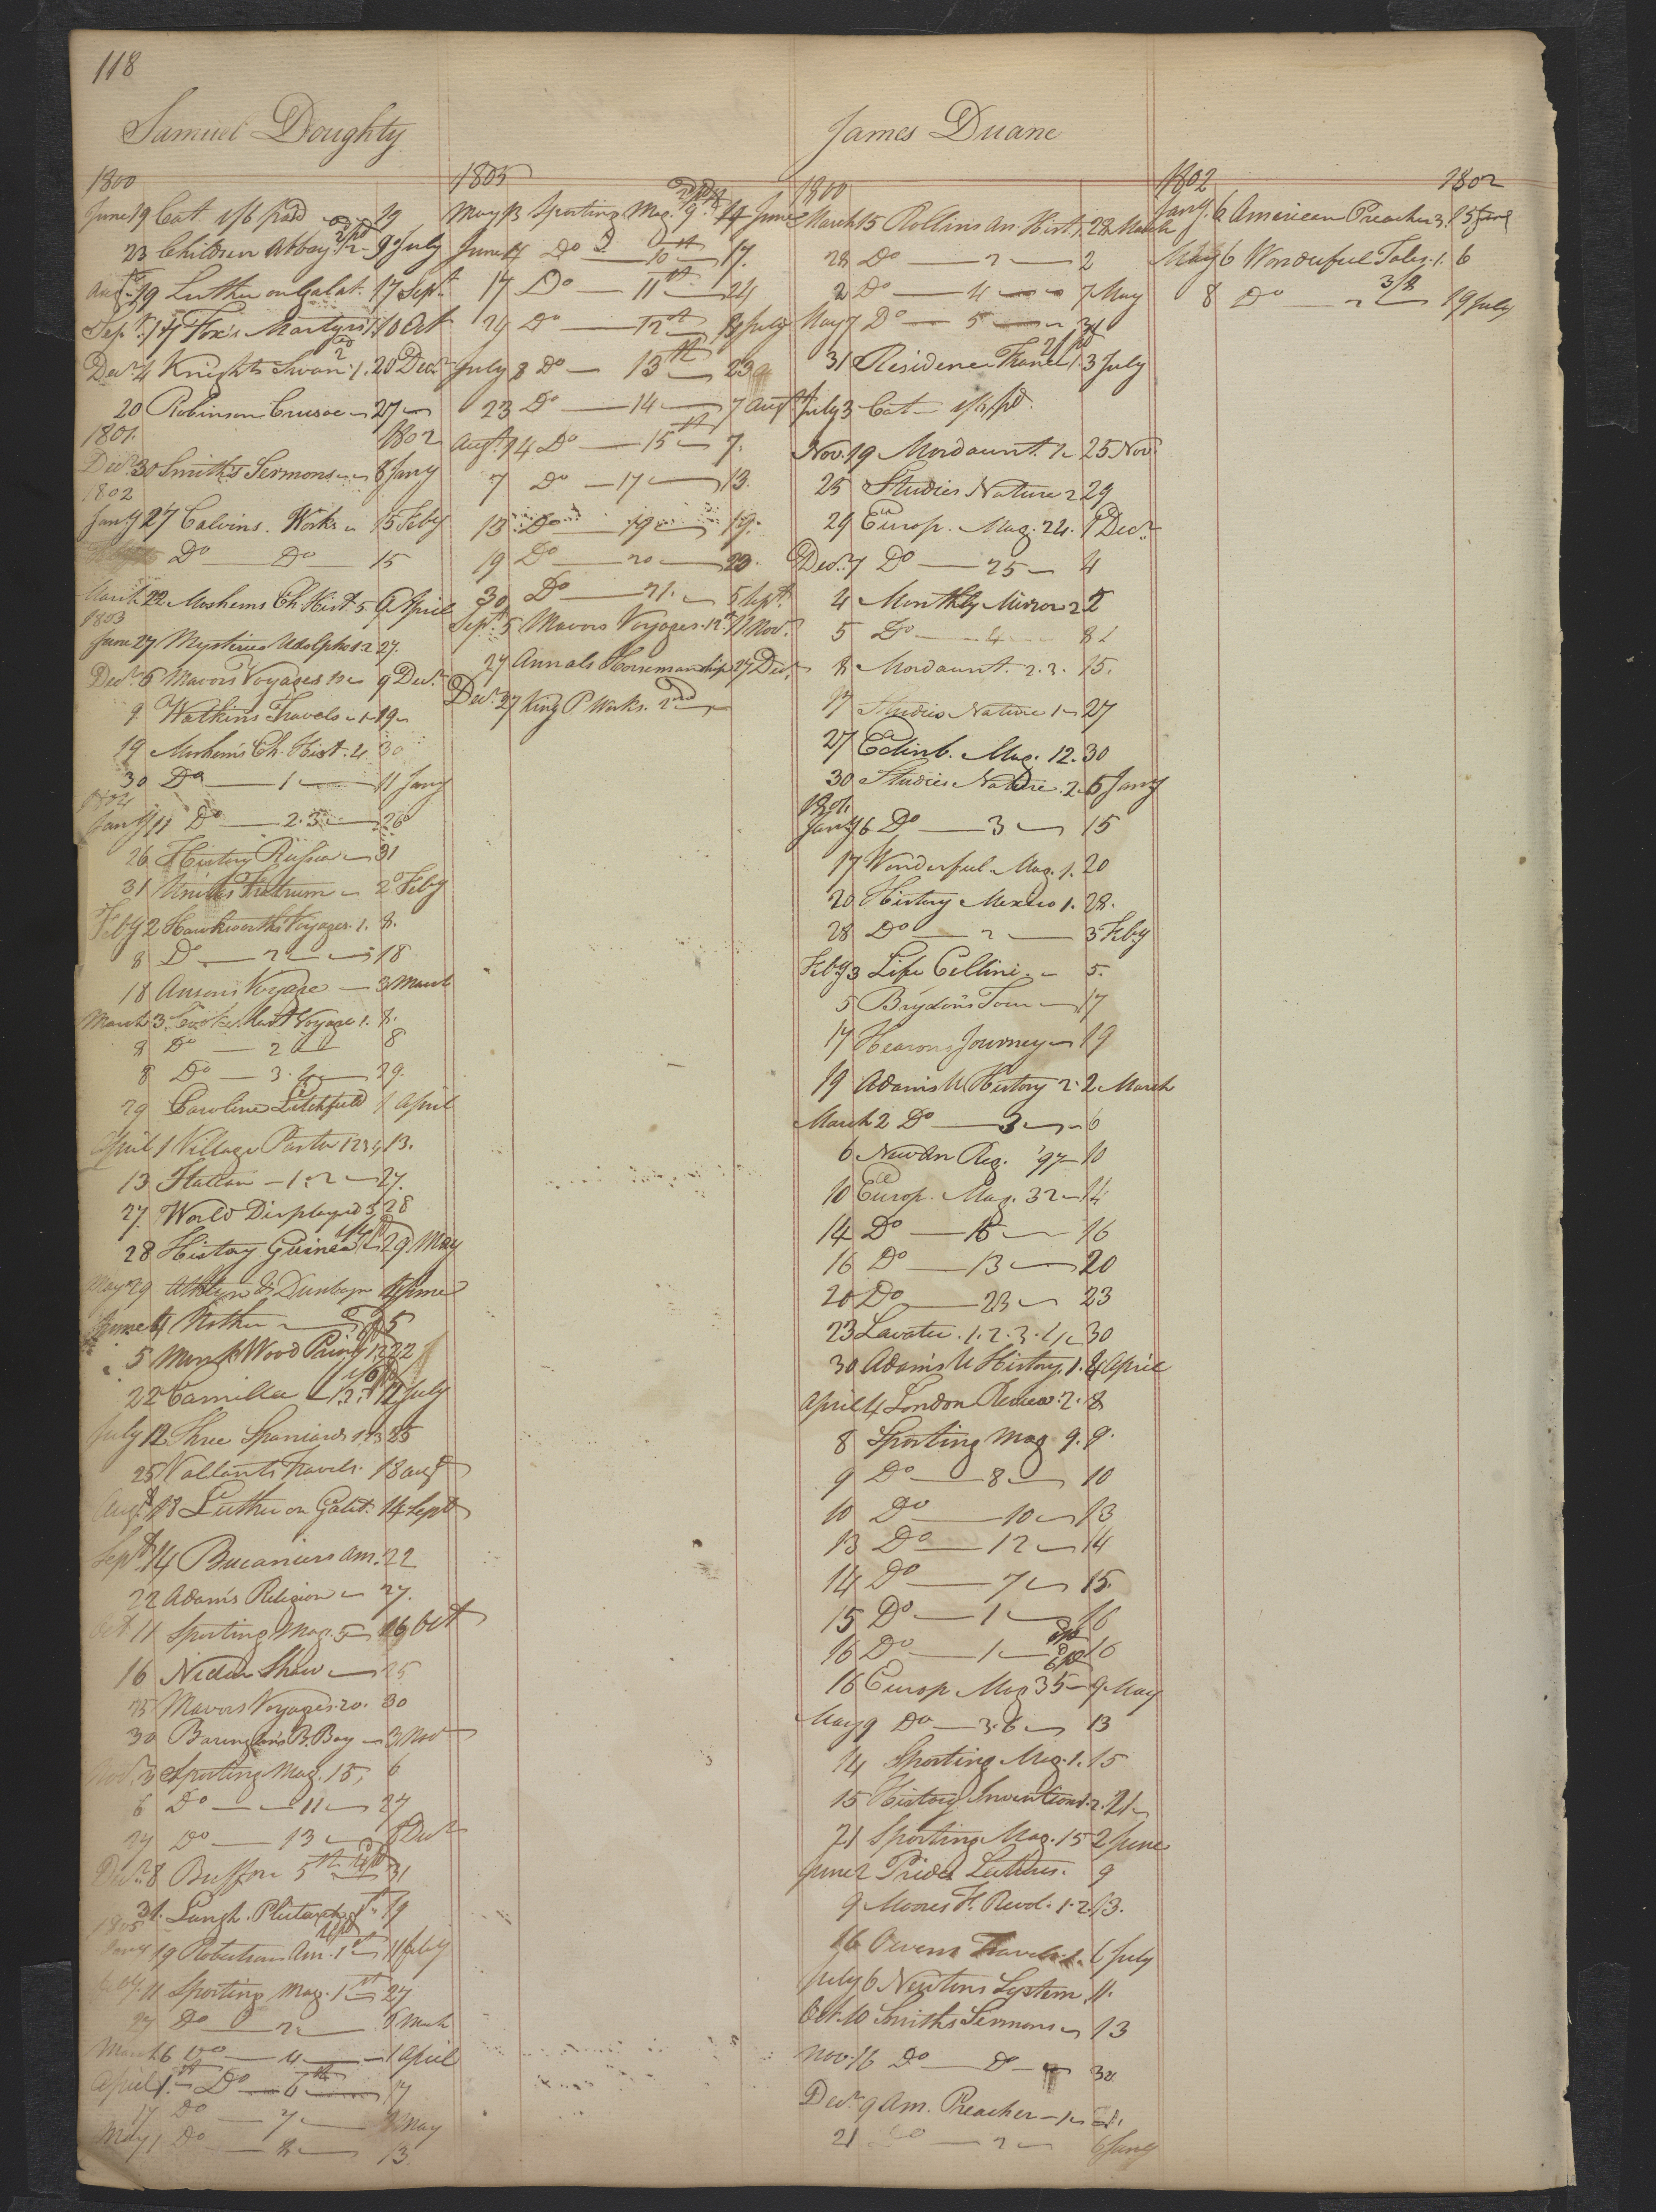 118
Samuel Doughty
1800
June 19 Cat 1/6 paid 19
23 Children Abbey 1.2 9 July
Augt. 19 Luther on Galat. 17 Sept.
Sepr. 17 Fox's Martyrs 10 Oct
Decr. 4 Knights Swan 1. 20 Decr
20 Robinson Crusoe 27
1801. 1802
Decr. 30 Smith's Sermons 8 Jany
1802
Jany 27 Calvins. Works 15 Feby
Do Do 15
March 22 Moshems Ch. Hist. 5 9 April
1803
June 27 Mysteries Udolpho 1 2 27.
Decr. 6 Mavors Voyages 9 Decr.
9 Watkins Travels 1 19
19 Moshem's Ch. Hist. 4 30
30 Do 1 11 Jany
1804
Jany 11 Do 2.3 26
26 History Russia 31
31 Unitas Fratrum 2 Feby
Feby 2 Hawkworths Voyages. 1. 8.
8 Do 2 18
18 Ansons Voyage 3 March
March 3 Cooks last Voyage 1. 8.
8 Do 2 8
8 Do 3. 4 29.
29 Caroline Litchfield 1 April
April 1 Village Pastor 1 2 3 13.
13 Italian 1. 2 27.
27 World Displayed 3 28
28 History Guinea 29 May
May 29 Athlyn & Dunbayne 4 June
June 4 Mother 5
5 Monk Wood Priory 1.2 22
22 Camilla 1.2. 12 July
July 12 Three Spaniards 1 2 3 25
25 Vallants Travels. 18 augt
Augt. 18 Luther on Galat. 14 Sept
Sept 14 Bucaniers Am. 22
22 Adams Religion 27.
Oct 11 Sporting Mag. 5 16 Oct
16 Neilson Shaw 25
25 Mavors Voyages. 20. 30
30 Baringtons B. Bay 3 Nov
Nov. 3 Sporting Mag. 15, 6
6 Do 11 27
27 Do 13 8 Decr
Decr. 8 Buffon 5th 31
31. Langh. Plutarch 1st 19
1805
Jany 19 Robertsons Am. 1st 11 Feby
Feby. 11 Sporting Mag. 1st 27
27 Do 2 6 March
March 6 Do 4 1 April
April 1st Do 6th 17
17 Do 7 1 May
May 1 Do 8 13.
1805
May 13 Sporting Mag. 9th 14 June
June 14 Do 10th 17.
17 Do 11th 24
24 Do 12th 8 July
July 8 Do 13th 23
23 Do 14 7 Augt
Augt. 4 Do 15th 7.
7 Do 17 13.
13 Do 19 19.
19 Do 20 23.
30 Do 21. 5 Sept.
Sept. 5 Mavors Voyages. 12th 11 Nov.
27 Annals Horsemanship 27 Decr.
Decr. 27 King P Works. 2nd
James Duane
1800
March 15 Rollins An. Hist. 1. 28 March
28 Do 2 2
2 Do 4 7 May
May 7 Do 5 31
31 Residence France 1. 3 July
July 3 Cat 1/6 pd.
Nov. 19 Mordaunt. 1 25 Nov.
25 Studies Nature 2 29
29 Europ. Mag. 24. 1 Decr.
Decr. 1 Do 25 4
4 Monthly Mirror 2 5
5 Do 4 8
8 Mordaunt. 2.3. 15.
17 Studies Nature 1 27
27 Edinb. Mag. 12. 30
30 Studies Nature. 2. 6 Jany
1801.
Jany 6 Do 3 15
17 Wonderful Mag. 1. 20
20 History Mexico 1. 28.
28 Do 2 3 Feby
Feby 3 Life Cellini. 5.
5 Brydon's Tour 17
17 Hearons Journey 19
19 Adams U. History 2. 2 March
March 2 Do 3 6
6 New An Reg. '97 10
10 Europ. Mag. 32 14
14 Do 15 16
16 Do 13 20
20 Do 23 23
23 Lavater. 1. 2. 3. 4 30
30 Adams U History. 1. 4 April
April 4 London Review. 2. 8
8 Sporting Mag 9. 9.
9 Do 8 10
10 Do 10 13
13 Do 12 14
14 Do 7 15.
15 Do 1 16
16 Do 1 16
16 Europ Mag 35 9 May
May 9 Do 36 13
14 Sporting Mag. 1. 15
15 History Inventions 1.2. 21
21 Sporting Mag. 15 2 June
June 2 Prides Lectures. 9
9 Moores F. Revol. 1. 2. 13.
16 Owens Travels 1. 6 July
July 6 Newtons System 11.
Oct. 10 Smiths Sermons 13
Nov. 16 Do Do 30
Decr. 9 Am. Preacher 1 21.
21 Do 2 6 Jany
1802 1802
Jany. 6 American Preacher 3. 15 June
May 6 Wonderful Tales. 1. 6
8 Do 2 3/8 19 July